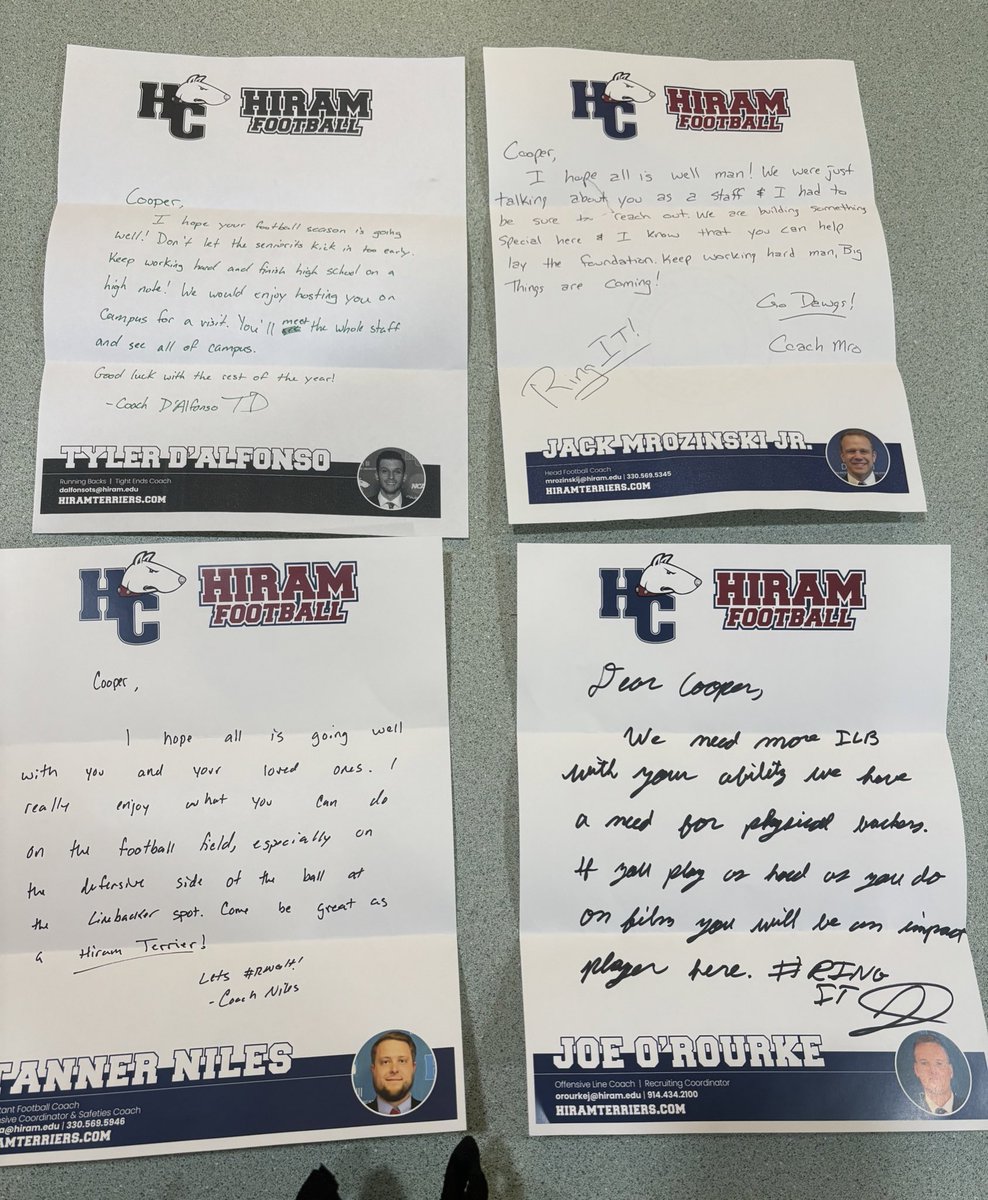 HC HIRAM
FOOTBALL
Cooper,
I hope your football season is going
well! Don't let the senioritis kick in too early.
Keep working hard and finish high school on a
high note! We would enjoy hosting you on
Campus for a visit. You'll meet the whole staff
and see all of campus.
Good luck with the rest of the year!
-Coach D'Alfonso TD
TYLER D'ALFONSO
Running Backs | Tight Ends Coach
dalfonsots@hiram.edu
HIRAMTERRIERS.COM
HC HIRAM
FOOTBALL
Cooper,
I hope all is well man! We were just
talking about you as a staff & I had to
be sure to reach out. We are building something
special here & I know that you can help
lay the foundation. Keep working hard man, Big
Things are coming!
Go Dawgs!
Coach Mro
Ring IT!
JACK MROZINSKI JR.
Head Football Coach
mrozinskij@hiram.edu | 330.569.5345
HIRAMTERRIERS.COM
HC HIRAM
FOOTBALL
Cooper,
I hope all is going well
with you and your loved ones. I
really enjoy what you can do
on the football field, especially on
the defensive side of the ball at
the Linebacker spot. Come be great as
a Hiram Terrier!
Lets
-Coach Niles
TANNER NILES
tant Football Coach
nsive Coordinator & Safeties Coach
a@hiram.edu | 330.569.5946
AMTERRIERS.COM
HC HIRAM
FOOTBALL
Dear Cooper,
We need more ILB
with your ability we have
a need for physical backers.
If you play as hard as you do
on film you will be an impact
player here. #RING
IT
JOE O'ROURKE
Offensive Line Coach | Recruiting Coordinator
orourkej@hiram.edu | 914.434.2100
HIRAMTERRIERS.COM